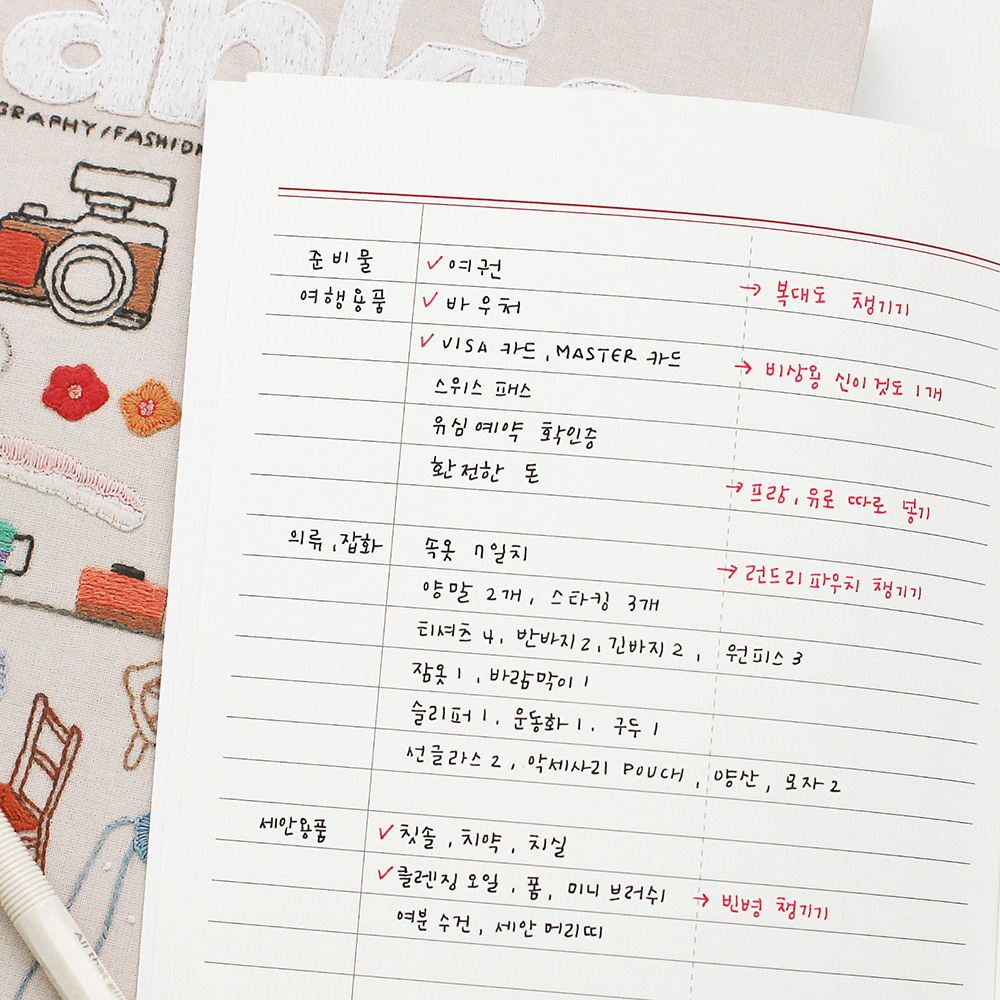 GRAPHY/FASHION
준비물 ✓ 여권 → 복대도 챙기기
여행용품 ✓ 바우처
✓ VISA 카드, MASTER 카드 → 비상용 신이것도 1개
스위스 패스
유심예약 확인증
환전한 돈 → 프랑, 유로 따로 넣기
의류, 잡화 속옷 7일치 → 런드리파우치 챙기기
양말 2개, 스타킹 3개
티셔츠 4, 반바지2, 긴바지 2, 원피스 3
잠옷 1, 바람막이 1
슬리퍼 1, 운동화 1, 구두 1
선글라스 2, 악세사리 POUCH, 양산, 모자 2
세안용품 ✓ 칫솔, 치약, 치실
✓ 클렌징 오일, 폼, 미니 브러쉬 → 빈병 챙기기
여분 수건, 세안 머리띠
All that